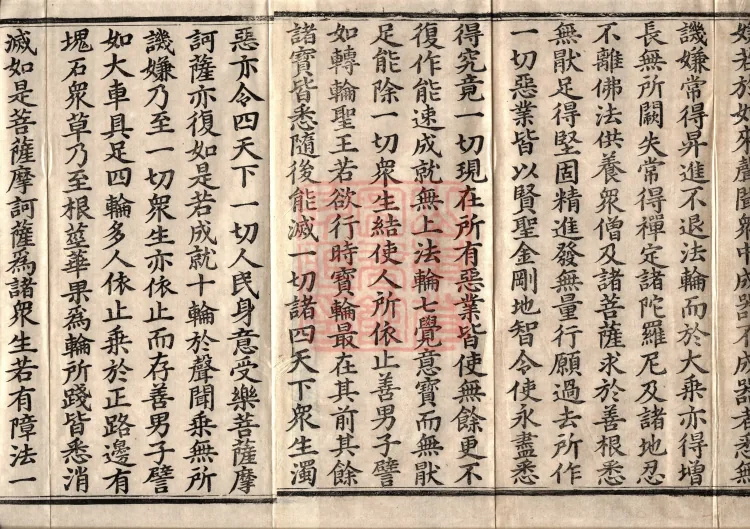 譏嫌常得昇進不退法輪而於大乘亦得增
長無所闕失常得禪定諸陀羅尼及諸地忍
不離佛法供養衆僧及諸菩薩求於善根悉
無猒足得堅固精進發無量行願過去所作
一切惡業皆以賢聖金剛地智令使永盡悉
得究竟一切現在所有惡業皆使無餘更不
復作能速成就無上法輪七覺意寶而無猒
足能除一切衆生結使人所依止善男子譬
如轉輪聖王若欲行時寶輪最在其前其餘
諸寶皆悉隨後能滅一切諸四天下衆生濁
惡亦令四天下一切人民身意受樂菩薩摩
訶薩亦復如是若成就十輪於聲聞乘無所
譏嫌乃至一切衆生亦依止而存善男子譬
如大車具足四輪多人依止乘於正路邊有
塊石衆草乃至根莖華果爲輪所踐皆悉消
滅如是菩薩摩訶薩爲諸衆生若有障法一